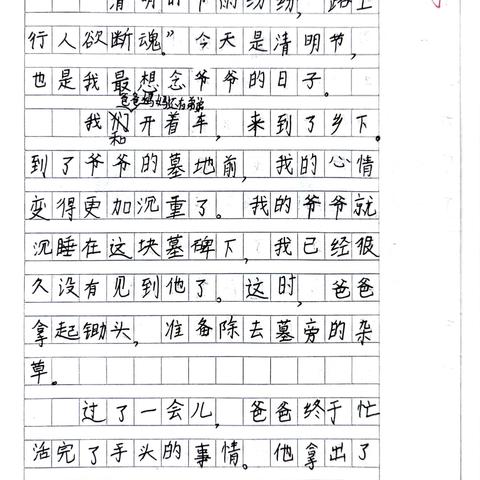 清明时节雨纷纷，路上
行人欲断魂。”今天是清明节，
也是我最想念爷爷的日子。
爸爸妈妈还有弟弟
我和开着车，来到了乡下。
到了爷爷的墓地前，我的心情
变得更加沉重了。我的爷爷就
沉睡在这块墓碑下，我已经很
久没有见到他了。这时，爸爸
拿起锄头，准备除去墓旁的杂
草。
过了一会儿，爸爸终于忙
活完了手头的事情。他拿出了